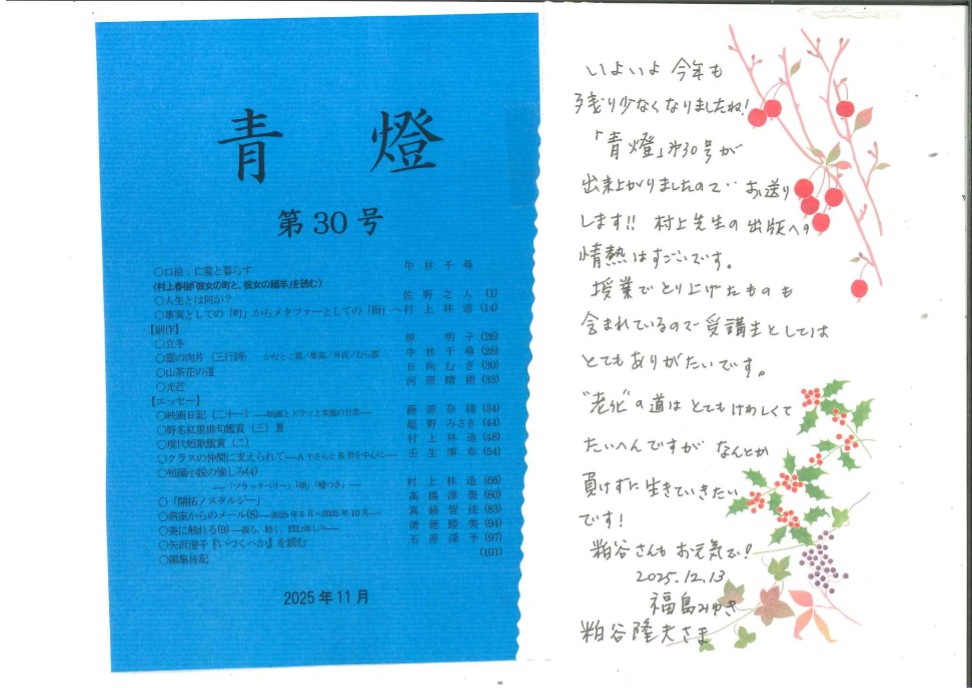 青 燈
第30号
○口絵:亡霊と暮らす 中林千尋
〈村上春樹『彼女の町と、彼女の緬羊』を読む〉
○人生とは何か? 佐野之人 (1)
○事実としての「町」からメタファーとしての「街」へ 村上林造 (14)
【創作】
○立冬 原 明子 (26)
○雲の向片(三行詩) かなとこ雲/巣嵐/月夜/むら雲 中林千尋 (28)
○山茶花の道 日向むぎ (30)
○光芒 河原晴樹 (33)
【エッセー】
○映画日記(二十一)―映画とドラマと末端の日常― 藤原奈緒 (34)
○野名紅里俳句鑑賞(三)夏 姫野みさき (44)
○現代短歌鑑賞(二) 村上林造 (48)
○クラスの仲間に支えられて―A子さんとK君を中心に― 壬生博幸 (54)
○短編小説の愉しみ(4)
―「ブラックベリー」「娘」「嘘つき」― 村上林造 (66)
○「開拓ノスタルジー」 高橋淳 (80)
○病室からのメール(8)―2025年5月~2025年10月― 真鍋智佳 (83)
○美に触れる(9)―観る、聴く、読む楽しみ― 清徳睦美 (94)
○矢沢澄子『いづくへか』を読む 石原深予 (97)
○編集後記 (101)
2025年11月
いよいよ 今年も
残り少なくなりましたね!
「青燈」第30号が
出来上がりましたので‥お送り
します!! 村上先生の出版への
情熱はすごいです。
授業でとり上げたものも
含まれているので受講生としては
とてもありがたいです。
"老化"の道は とてもけわしくて
たいへんですが なんとか
負けずに生きていきたい
です!
粕谷さんもお元気で!
2025.12.13
福島みゆき
粕谷隆夫さま